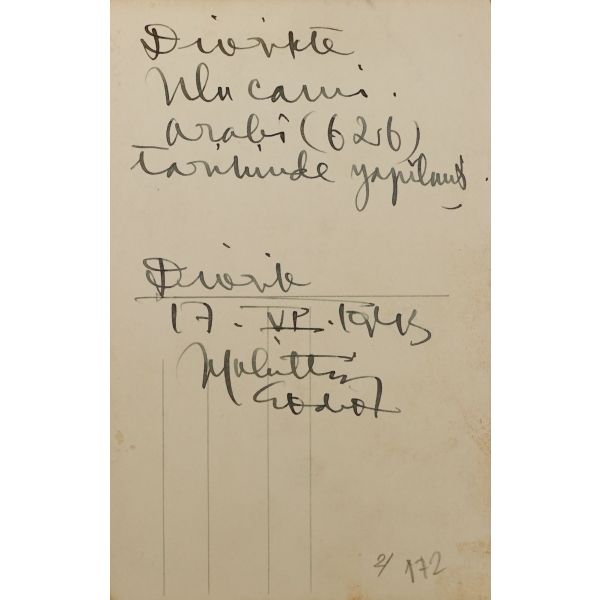 Divrikte
Ulu cami.
arabî (626)
tarihinde yapılmış.
Divrik
17. VI. 1943
Muhittin
2/172